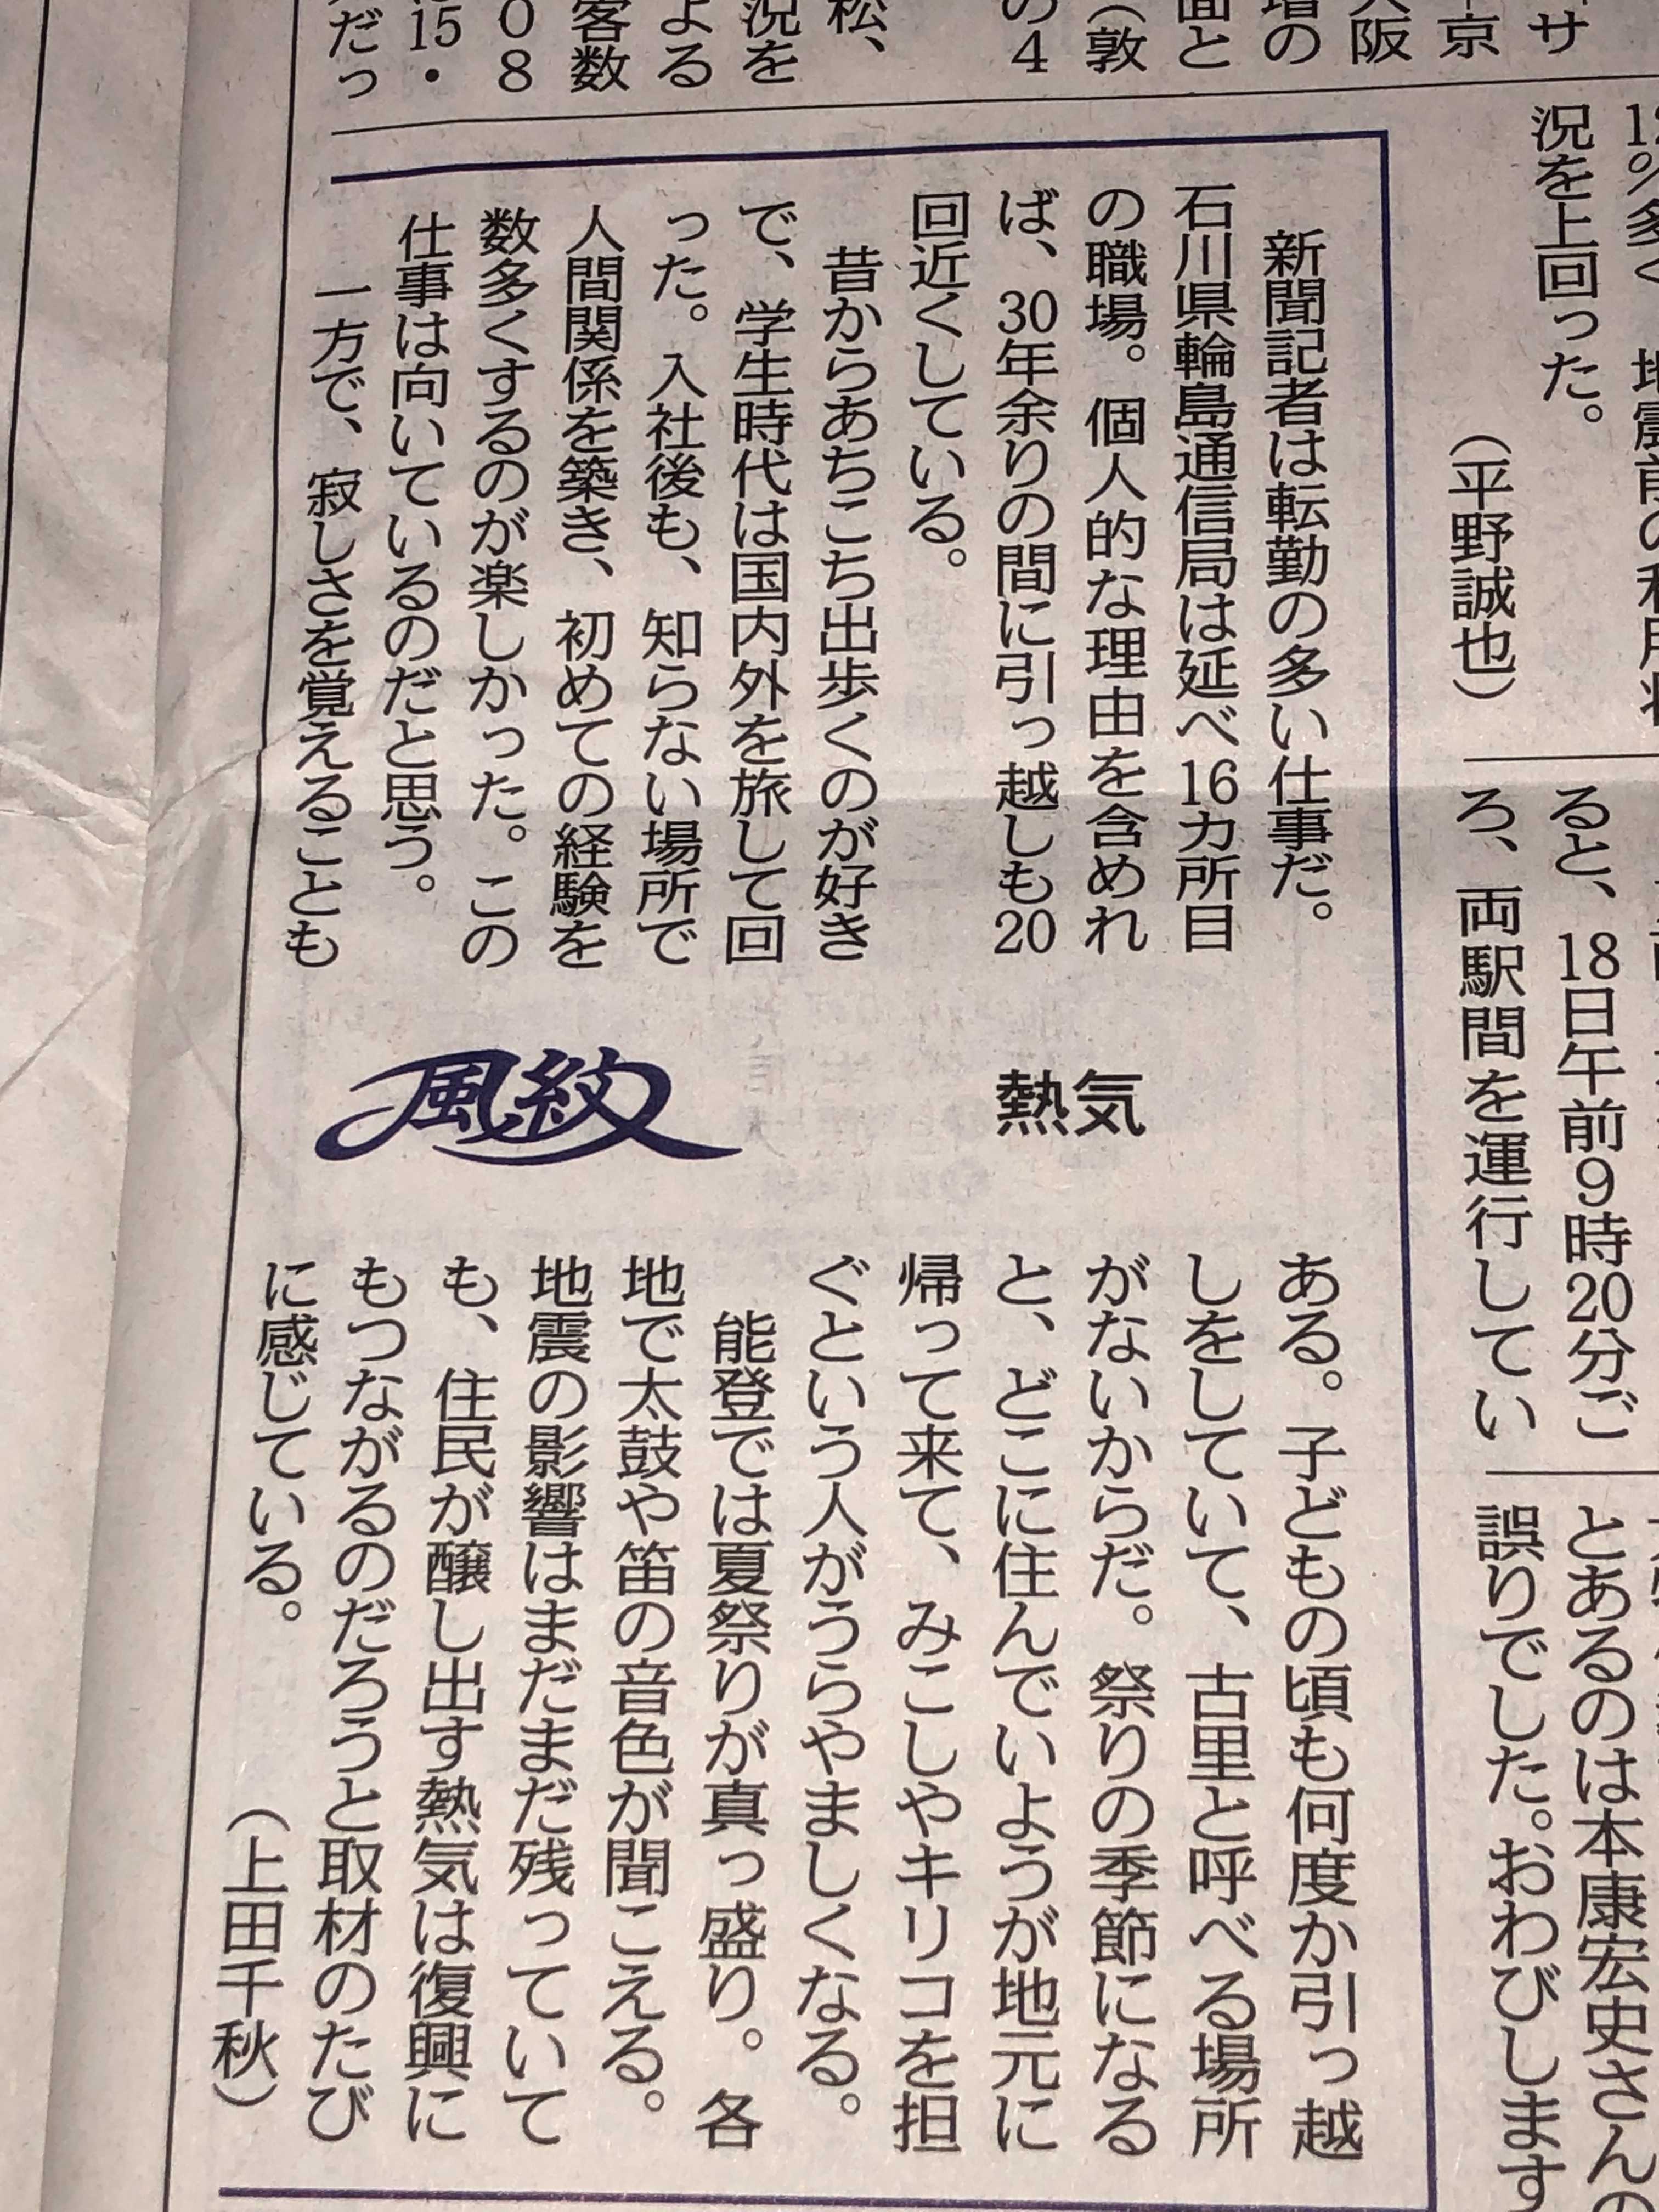 サ
京
大阪
増の
面と
（敦
の4
松、
況を
よる
客数
08
15・
だっ
況を上回った。
（平野誠也）
ると、18日午前9時20分ご
ろ、両駅間を運行してい
とあるのは本康宏史さんの
誤りでした。おわびします
熱気
風紋
新聞記者は転勤の多い仕事だ。
石川県輪島通信局は延べ16カ所目
の職場。個人的な理由を含めれ
ば、30年余りの間に引っ越しも20
回近くしている。
昔からあちこち出歩くのが好き
で、学生時代は国内外を旅して回
った。入社後も、知らない場所で
人間関係を築き、初めての経験を
数多くするのが楽しかった。この
仕事は向いているのだと思う。
一方で、寂しさを覚えることも
ある。子どもの頃も何度か引っ越
しをしていて、古里と呼べる場所
がないからだ。祭りの季節になる
と、どこに住んでいようが地元に
帰って来て、みこしやキリコを担
ぐという人がうらやましくなる。
能登では夏祭りが真っ盛り。各
地で太鼓や笛の音色が聞こえる。
地震の影響はまだまだ残っていて
も、住民が醸し出す熱気は復興に
もつながるのだろうと取材のたび
に感じている。
（上田千秋）